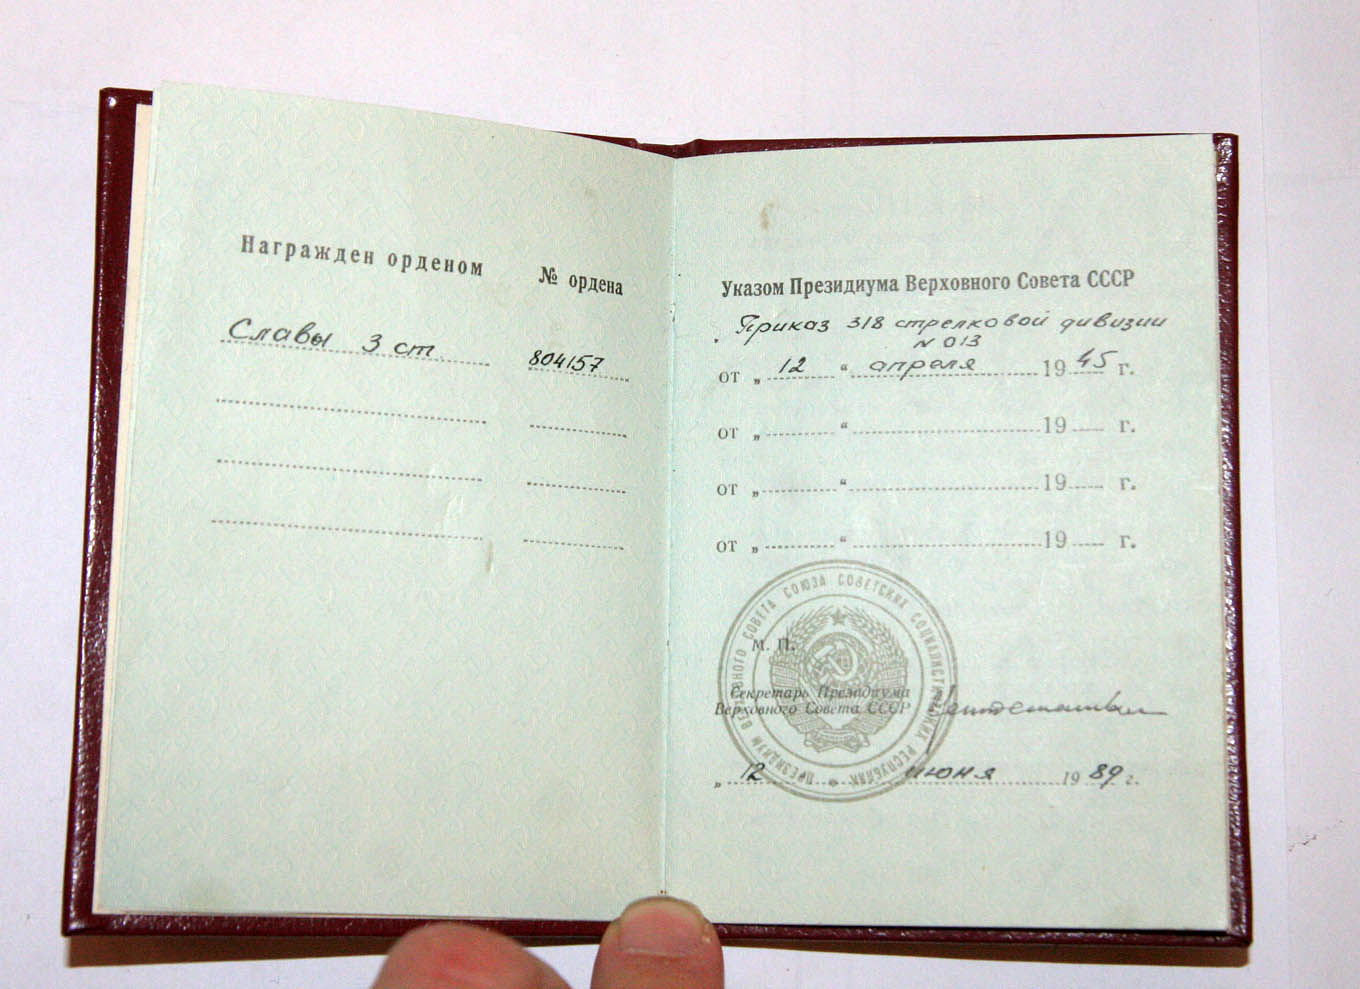 Награжден орденом № ордена
Славы 3 ст. 804157
Указом Президиума Верховного Совета СССР
Приказ 318 стрелковой дивизии
N 013
от „ 12 “ апреля 1945 г.
от „ “ 19 г.
от „ “ 19 г.
от „ “ 19 г.
ПРЕЗИДИУМ ВЕРХОВНОГО СОВЕТА СОЮЗА СОВЕТСКИХ СОЦИАЛИСТИЧЕСКИХ РЕСПУБЛИК
М. П.
Секретарь Президиума
Верховного Совета СССР
„ 12 “ июня 1989 г.